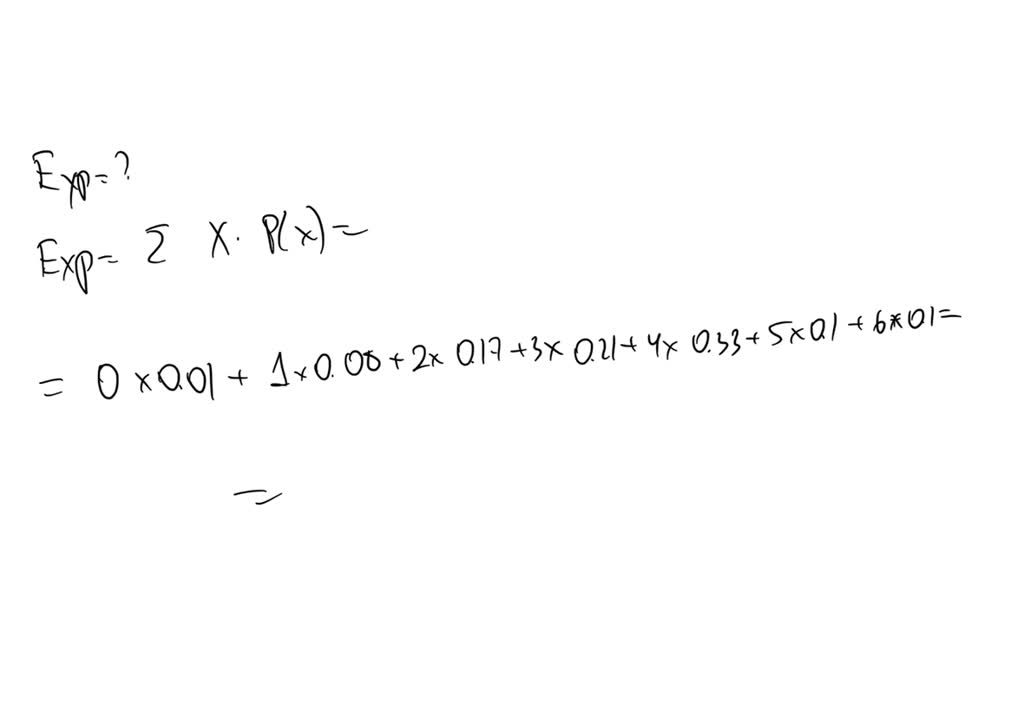 Exp=?
Exp= Σ X. P(x)=
= 0 x 0.01 + 1 x 0.08 + 2x 0.17 + 3x 0.21 + 4x 0.33 + 5 x 0.1 + 6* 0.1 =
=